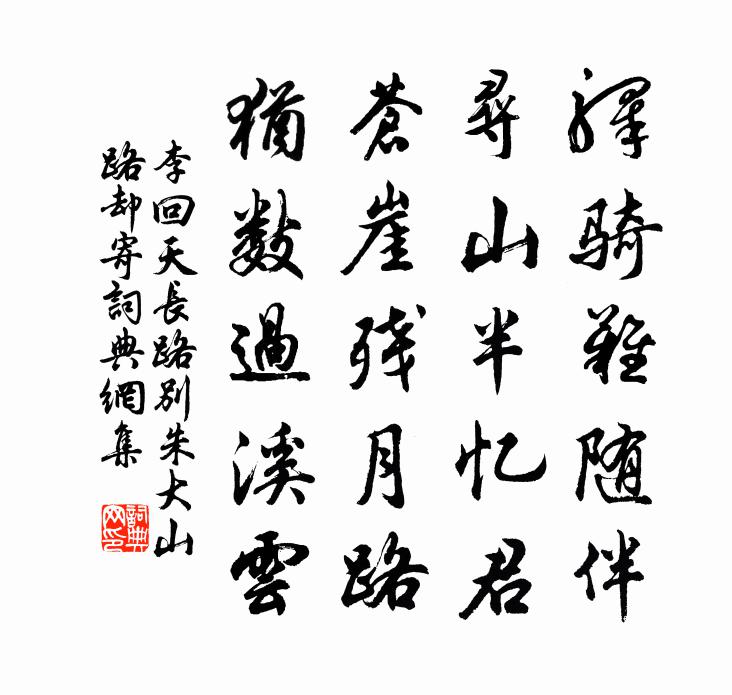 驛騎難随伴
尋山半忆君
蒼崖残月路
猶数過溪雲
李回天長路別朱大山
路却寄詞典網集
詞典网印